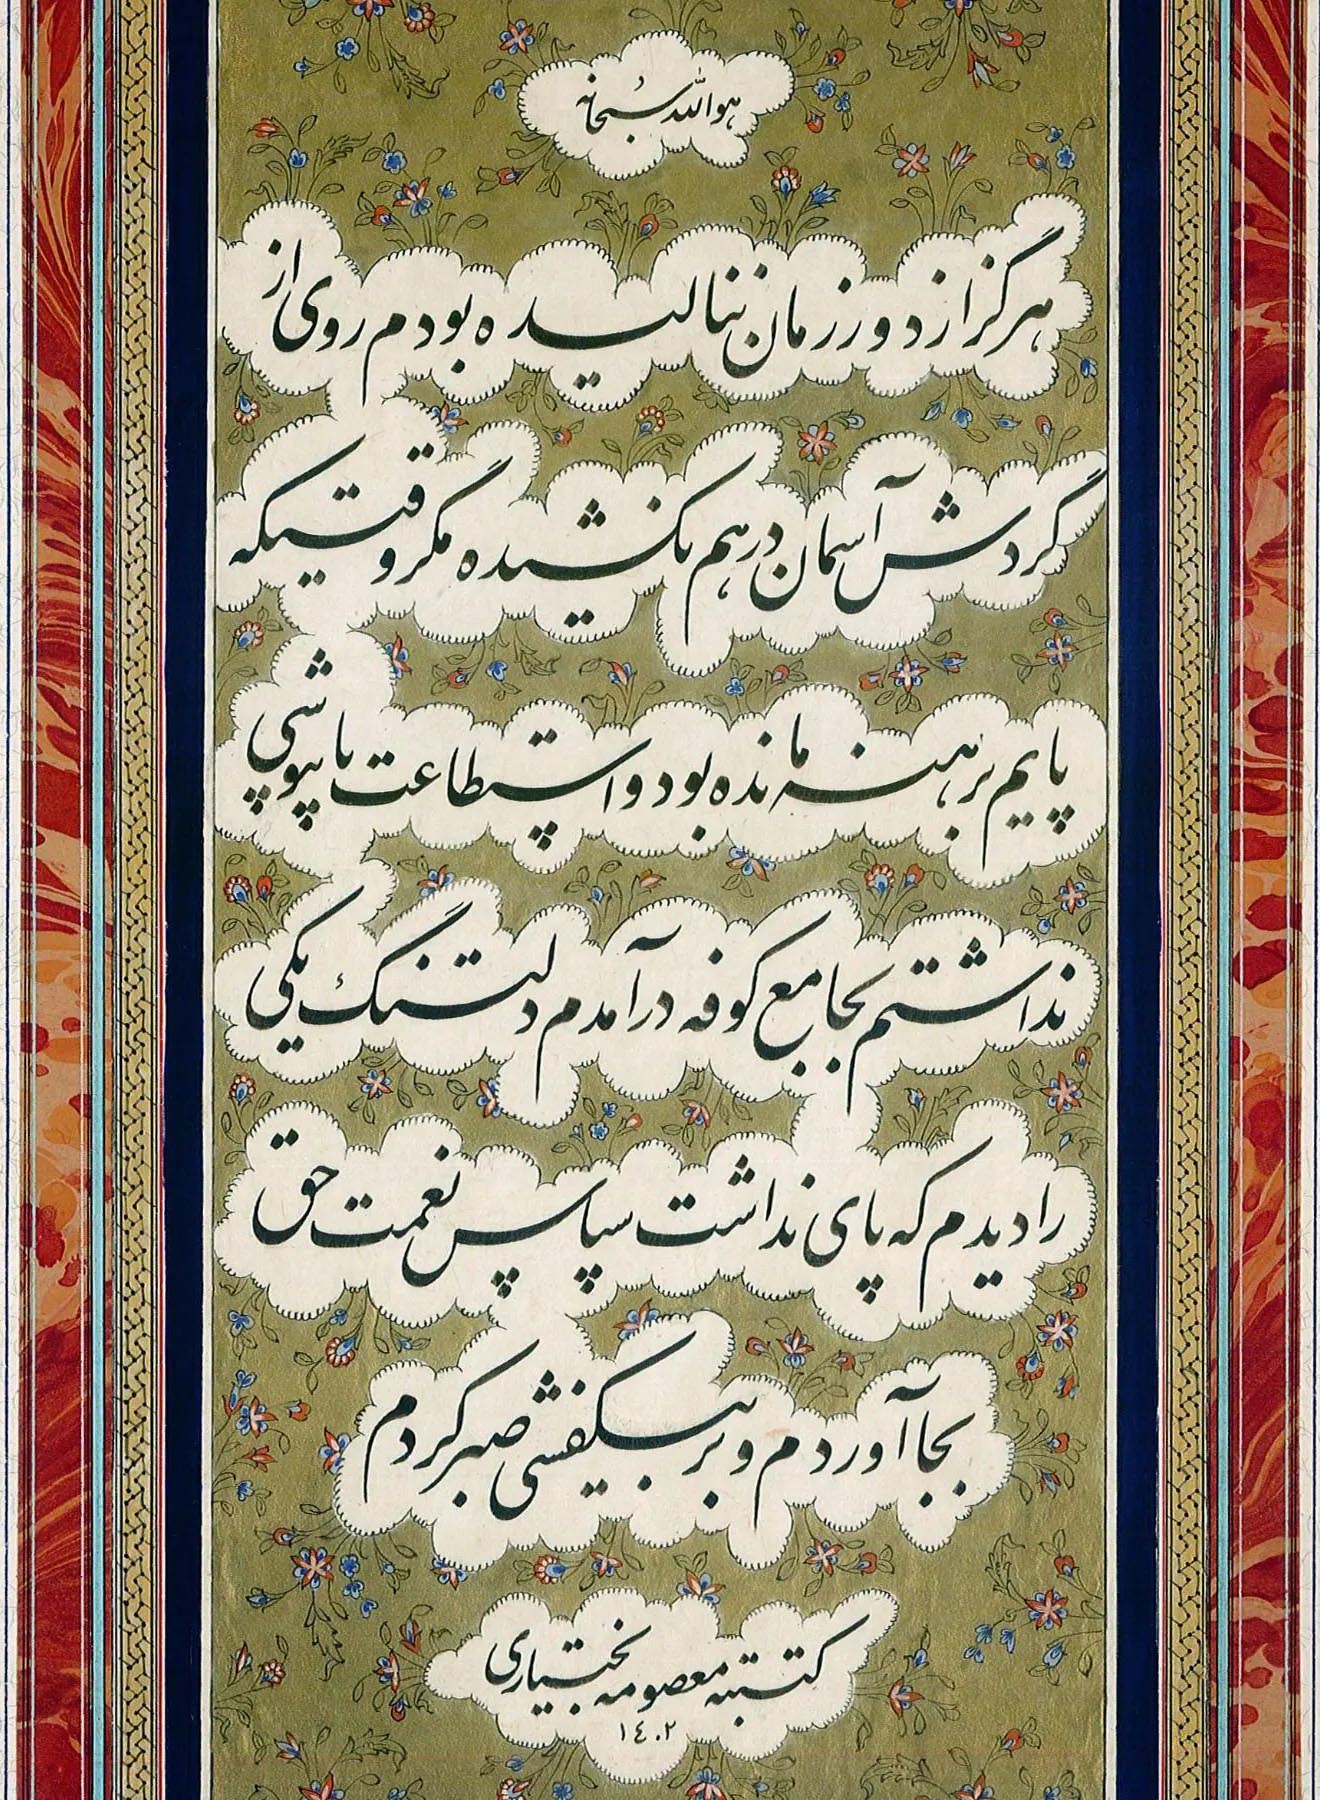 هوالله سبحانه
هرگز از دور زمان ننالیده بودم روی از
گردش آسمان درهم نکشیده مگر وقتیکه
پایم برهنه مانده بود و استطاعت پاپوشی
نداشتم بجامع کوفه درآمدم دلتنگ یکی
را دیدم که پای نداشت سپاس نعمت حق
بجا آوردم و بر بیکفشی صبر کردم
کتبته معصومه بختیاری
۱٤۰۲